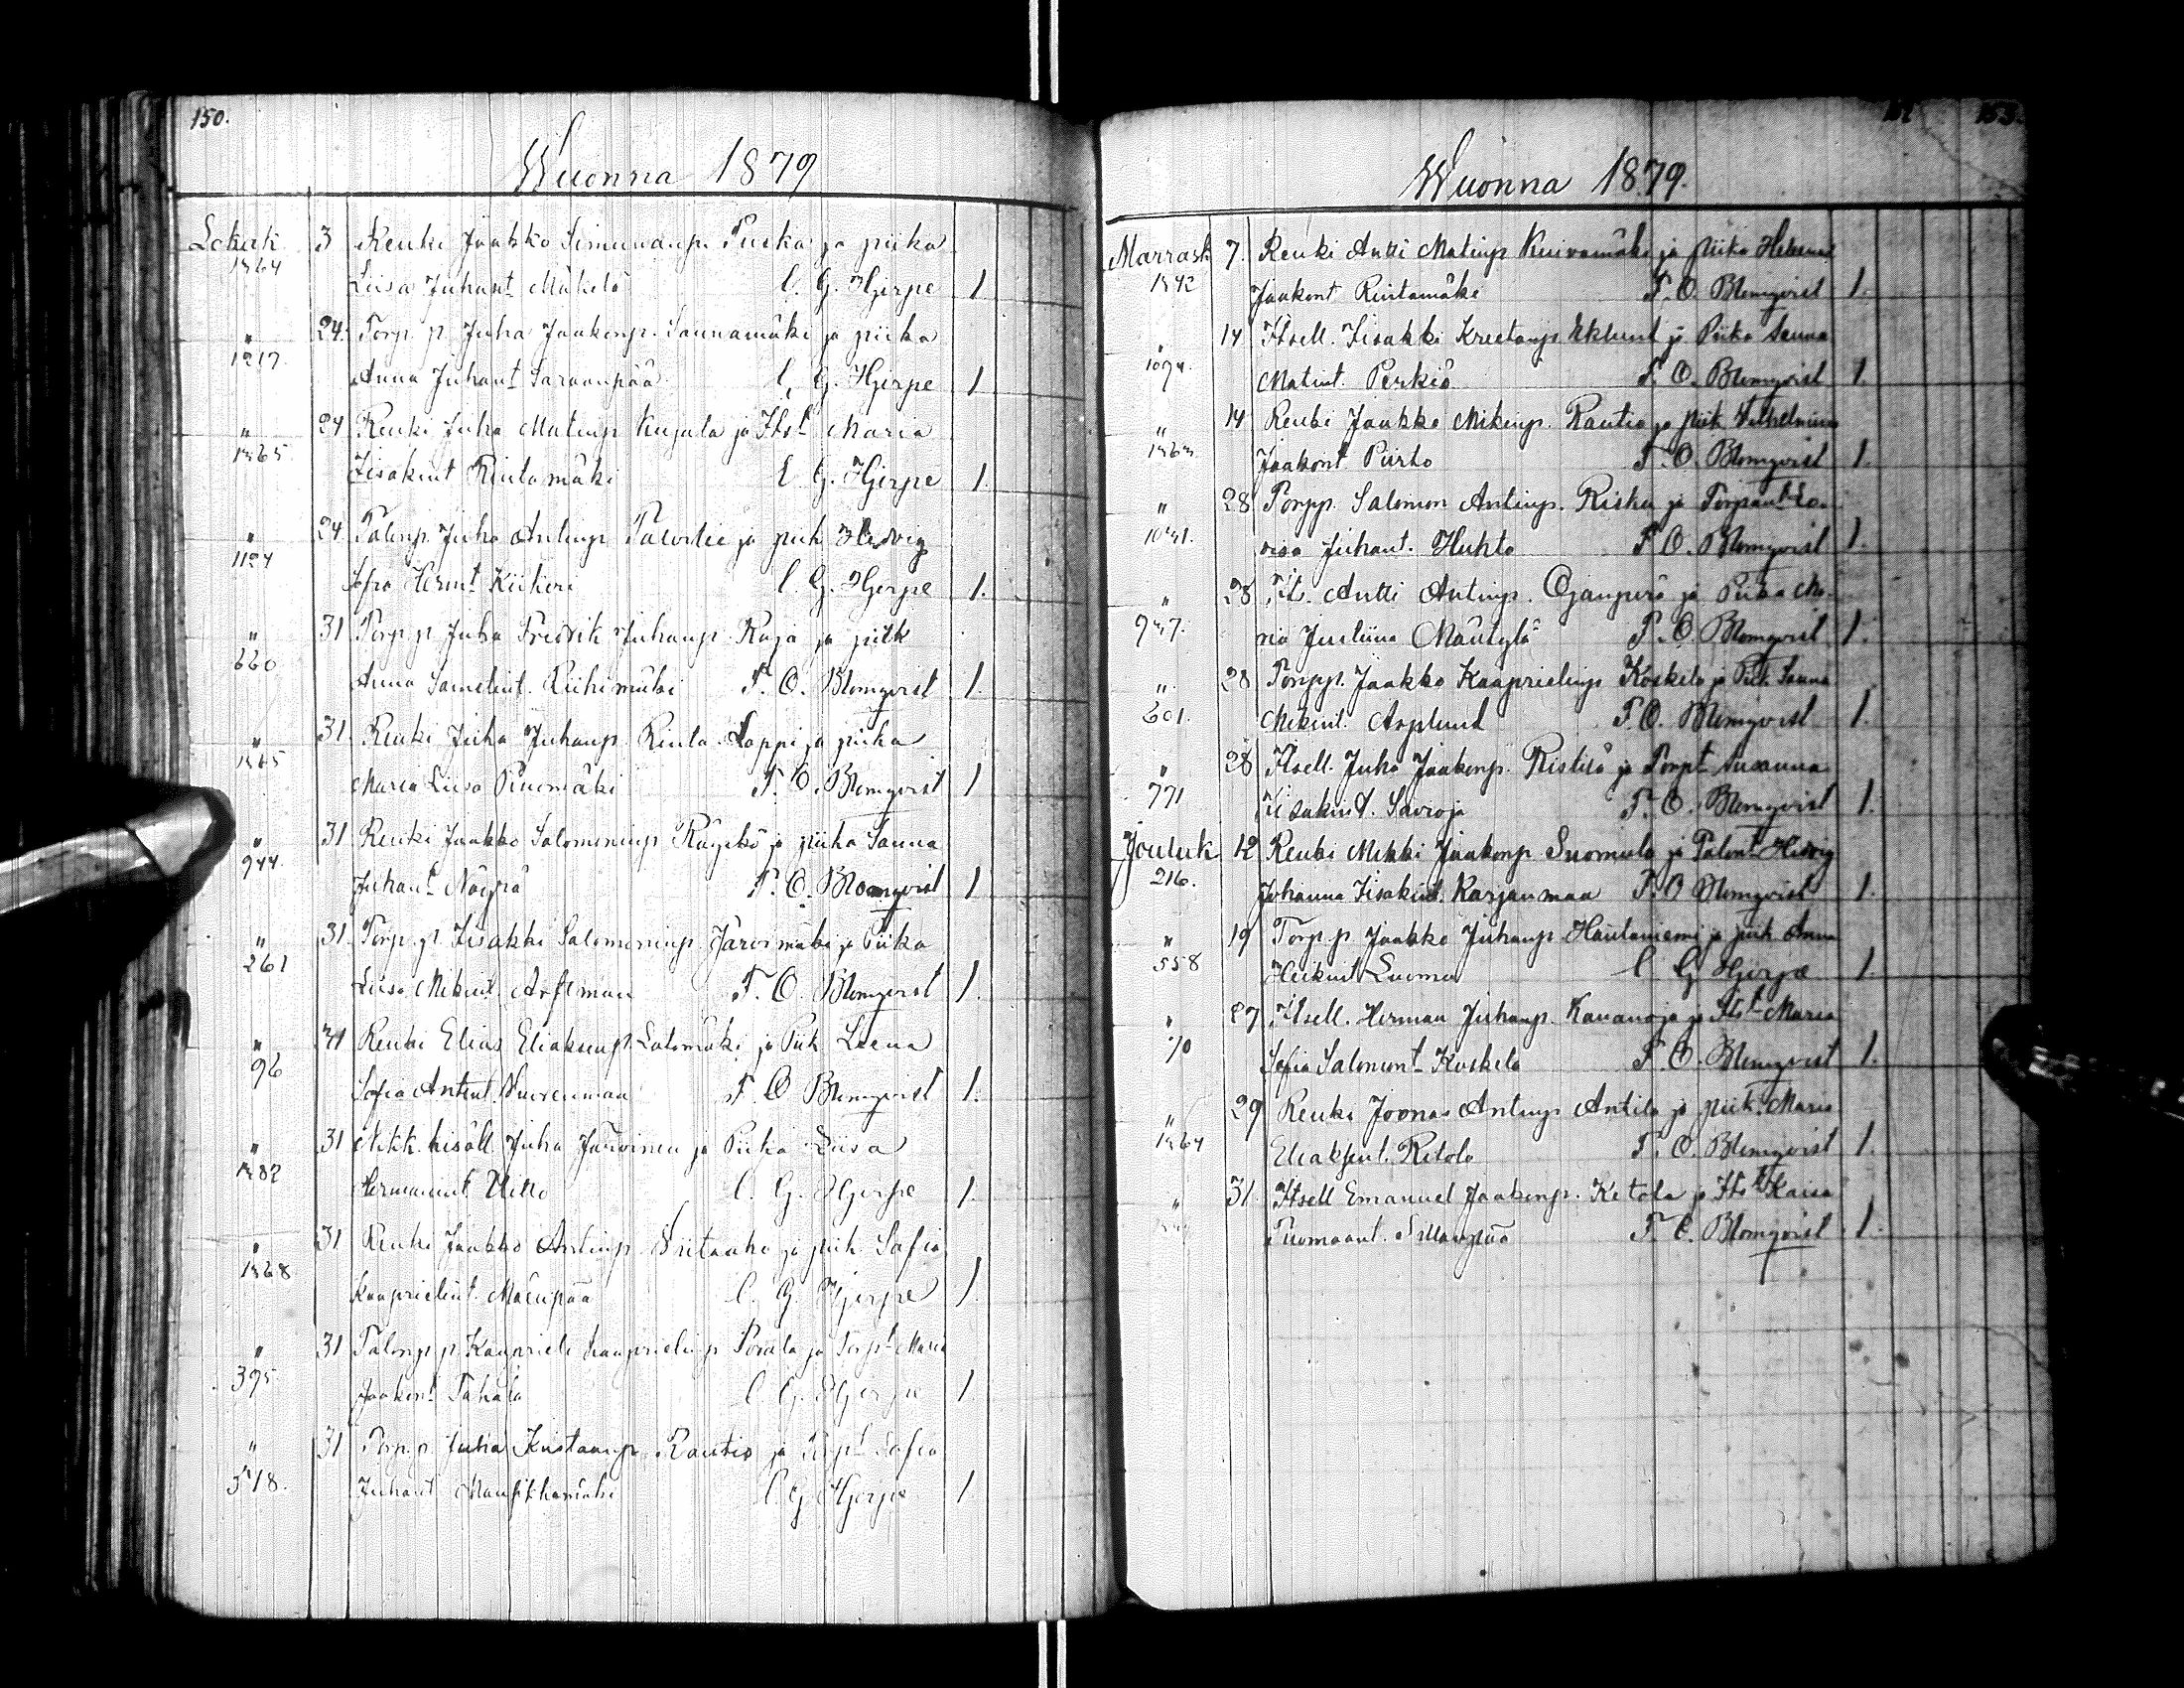 150.
Wuonna 1879
Lokak 3 Renki Jaakko Simunanp. Purka ja piika
1864 Liisa Juhant. Mäkelö C. G. Hjerpe 1
" 24. Torp. p. Juha Jaakonp. Saunamäki ja piika
1217. Anna Juhant Saraanpää C. G. Hjerpe 1
" 24 Renki Juha Matinp Kujala ja Itst Maria
1865 Iisakint Rintamäki C. G. Hjerpe 1.
" 24 Talonp. Juha Antinp Palvelie ja piik Hedvig
1124 Sofia Hermt. Kiikeri C. G. Hjerpe 1.
" 31 Torp. p Juha Fredrik Juhanp. Raja ja piik
660 Anna Samelint. Riihimäki F. O. Blomqvist 1.
" 31. Renki Juha Juhanp. Rinta-Loppi ja piika
1865 Maria Liisa Puumäki F. O. Blomqvist 1
" 31 Renki Jaakko Salomoninp Räyskö ja piika Sanna
944. Juhant Näppä F. O. Blomqvist 1
" 31. Torp. p. Iisakki Salomoninp. Järvimäki ja Piika
261 Liisa Mikint. Arfman F. O. Blomqvist 1.
" 31 Renki Elias Eliaksenp. Lalomäki ja Piik Leena
96 Sofia Antint. F. O Blomqvist 1.
" 31 Juha Järvinen ja Piika Liisa
1282 Hermannint. Hillo C. G. Hjerpe 1.
" 31 Renki Jaakko Antinp Viitaaho ja piik Sofia
1868 Kaaprielint. Mäenpää C. G. Hjerpe 1.
" 31 Talonp. p. Kaaprieli Kaaprielinp Porala ja Torp.t Maria
395 Jaakont Pahala C. G. Hjerpe 1.
" 31 Torp. p. Juha Kustaanp. Rautio ja Torpt Sofia
518. Juhant Mansikkamäki C. G. Hjerpe 1
153.
Wuonna 1879.
Marrask 7. Renki Antti Matinp Kuivamäki ja piika Helena
1842 Jaakont Rintamäki F. O. Blomqvist 1.
" 14 Itsell. Iisakki Kreetanp. Eklund ja Piika Sanna
1094. Matint. Perkiö F. O. Blomqvist 1.
" 14 Renki Jaakko Mikinp. Rautio ja piik Vilhelmina
1863 Jaakont Piirto F. O. Blomqvist 1.
" 28 Torpp. Salomon Antinp. Risku ja Torpant Lo-
1041. visa Juhant. Huhta F. O. Blomqvist 1.
" 28 Its. Antti Antinp. Ojanperä ja Piika Ma-
947. ria Justiina Mäntylä F. O. Blomqvist 1.
" 28 Torpp. Jaakko Kaaprielinp Koskela ja Piik Sanna
601. Mikint. Asplund F. O. Blomqvist 1.
" 28 Itsell. Juha Jaakonp. Ristilä ja Torpt Susanna
771 Iisakint. Savioja F. O. Blomqvist 1.
Jouluk 12 Renki Mikki Jaakonp Suomela ja Talont Hedvig
216. Johanna Iisakint. Karjanmaa F. O Blomqvist 1.
" 19 Torp. p Jaakko Juhanp. Hautaniemi ja piik Anna
558 Heikint Luoma C. G Hjerpe 1.
" 27 Itsell. Herman Juhanp. Kananoja ja Itst Maria
70 Sofia Salomont Koskela F. O. Blomqvist 1.
" 29 Renki Joonas Antinp Antila ja piik. Maria
1864 Eliaksent. Ritola F. O. Blomqvist 1.
" 31. Itsell Emanuel Jaakonp. Ketola ja Itst Kaisa
Tuomaant. Sillanpää F. O. Blomqvist. 1.